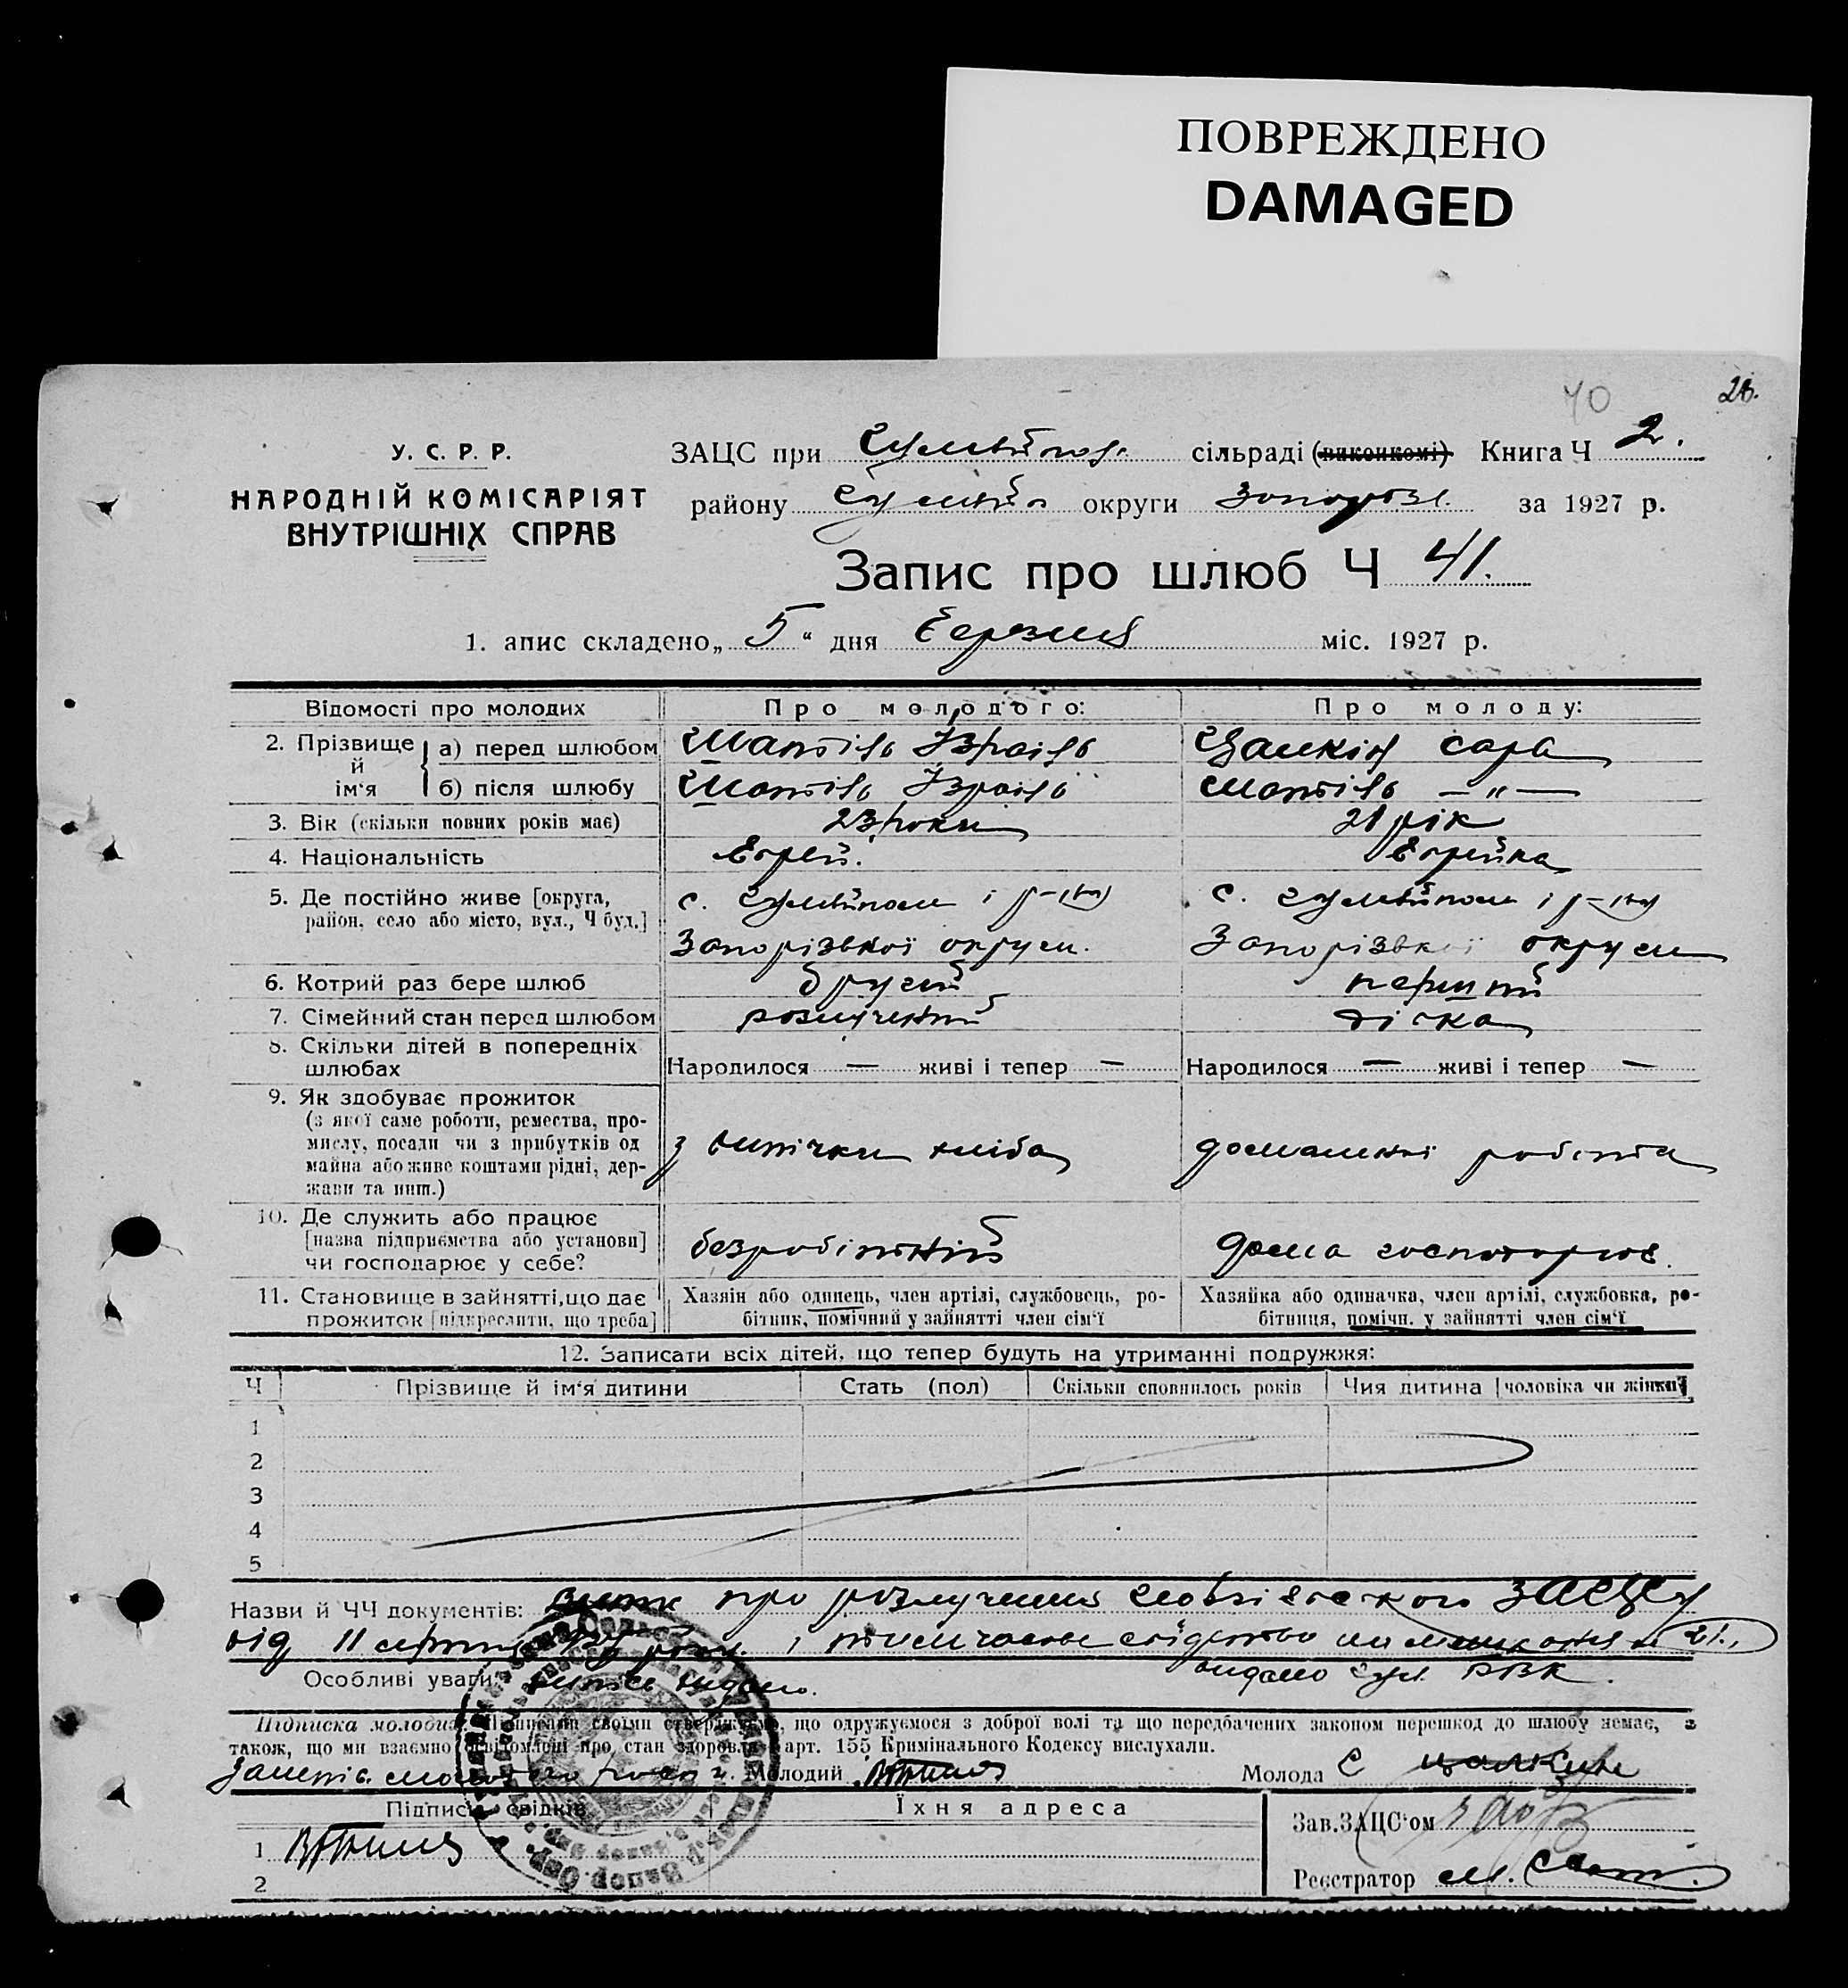 ПОВРЕЖДЕНО
DAMAGED
40
28.
У. С. Р. Р.
НАРОДНІЙ КОМІСАРІЯТ
ВНУТРІШНІХ СПРАВ
ЗАЦС при сільраді (виконкомі) Книга Ч 2.
району округи Запоріз. за 1927 р.
Запис про шлюб Ч 41.
1. апис складено „ 5 “ дня березня міс. 1927 р.
Відомості про молодих
Про молодого:
Про молоду:
2. Прізвище й ім‘я
а) перед шлюбом
Ізраїль
Цалкін Сара
б) після шлюбу
Ізраіль
— „ —
3. Вік (скільки повних років має)
23 роки
21 рік
4. Національність
Єврей.
Єврейка
5. Де постійно живе [округа,
район, село або місто, вул., Ч буд.]
с. Гуляйполе і р-ну
Запорізької округи.
с. Гуляйполе і р-ну
Запорізької округи
6. Котрий раз бере шлюб
другий
перший
7. Сімейний стан перед шлюбом
розлучений
дівка
8. Скільки дітей в попередніх
шлюбах
Народилося — живі і тепер —
Народилося — живі і тепер —
9. Як здобуває прожиток
(з якої саме роботи, ремества, про-
мислу, посади чи з прибутків од
майна або живе коштами рідні, дер-
жави та инш.)
з випічки хліба
домашньої робота
10. Де служить або працює
[назва підприємства або установи]
чи господарює у себе?
безробітній
дома господарює.
11. Становище в зайнятті, що дає
прожиток [підкреслити, що треба]
Хазяін або одинець, член артілі, службовець, ро-
бітник, помічний у зайнятті член сім‘ї
Хазяйка або одиначка, член артілі, службовка, ро-
бітниця, помічн. у зайнятті член сім‘ї
12. Записати всіх дітей, що тепер будуть на утриманні подружжя:
Ч
Прізвище й ім‘я дитини
Стать (пол)
Скільки сповнилось років
Чия дитина [чоловіка чи жінки]
1
2
3
4
5
Назви й ЧЧ документів: про розлучення ЗАЦСу
від 11 і 21,
Особливі уваги: видано. видано Гул. РВК.
Підписка молодих. Підписами своїми стверджуємо, що одружуємося з доброї волі та що передбачених законом перешкод до шлюбу немає, а
також, що ми взаємно повідомлені про стан здоровля і арт. 155 Кримінального Кодексу вислухали.
Молодий
Молода С Цалкин
Підписи свідків
Їхня адреса
1
2
Зав. ЗАЦС‘ом
Реєстратор